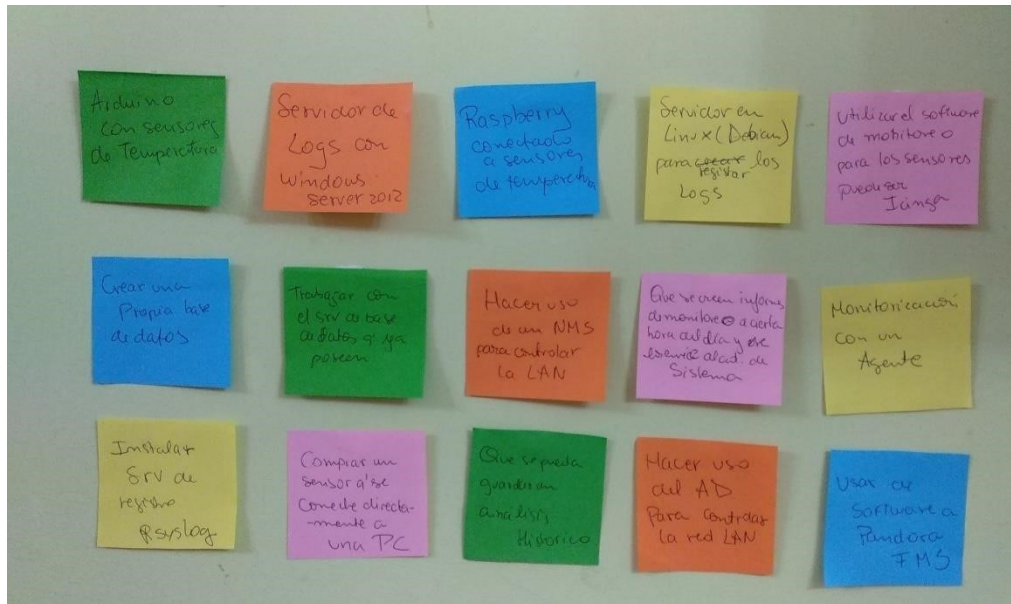 Arduino
con sensores
de Temperatura
Servidor de
Logs con
windows
server 2012
Raspberry
conectado
a sensores
de temperatura
Servidor en
Linux (Debian)
para crear los
registrar
Logs
Utilizar el software
de mobitoreo
para los sensores
puede ser
Icinga
Crear una
Propia base
de datos
Trabajar con
el srv de base
de datos q' ya
poseen
Hacer uso
de un NMS
para controlar
la LAN
Que se creen informes
de monitoreo a cierta
hora del día y se
al ad. de
Sistema
Monitorización
con un
Agente
Instalar
Srv de
registro
Rsyslog
Comprar un
sensor q' se
conecte directa-
-mente a
una PC
Que se pueda
guardar un
análisis
Historico
Hacer uso
del AD
Para controlar
la red LAN
Usar de
Software a
Pandora
FMS